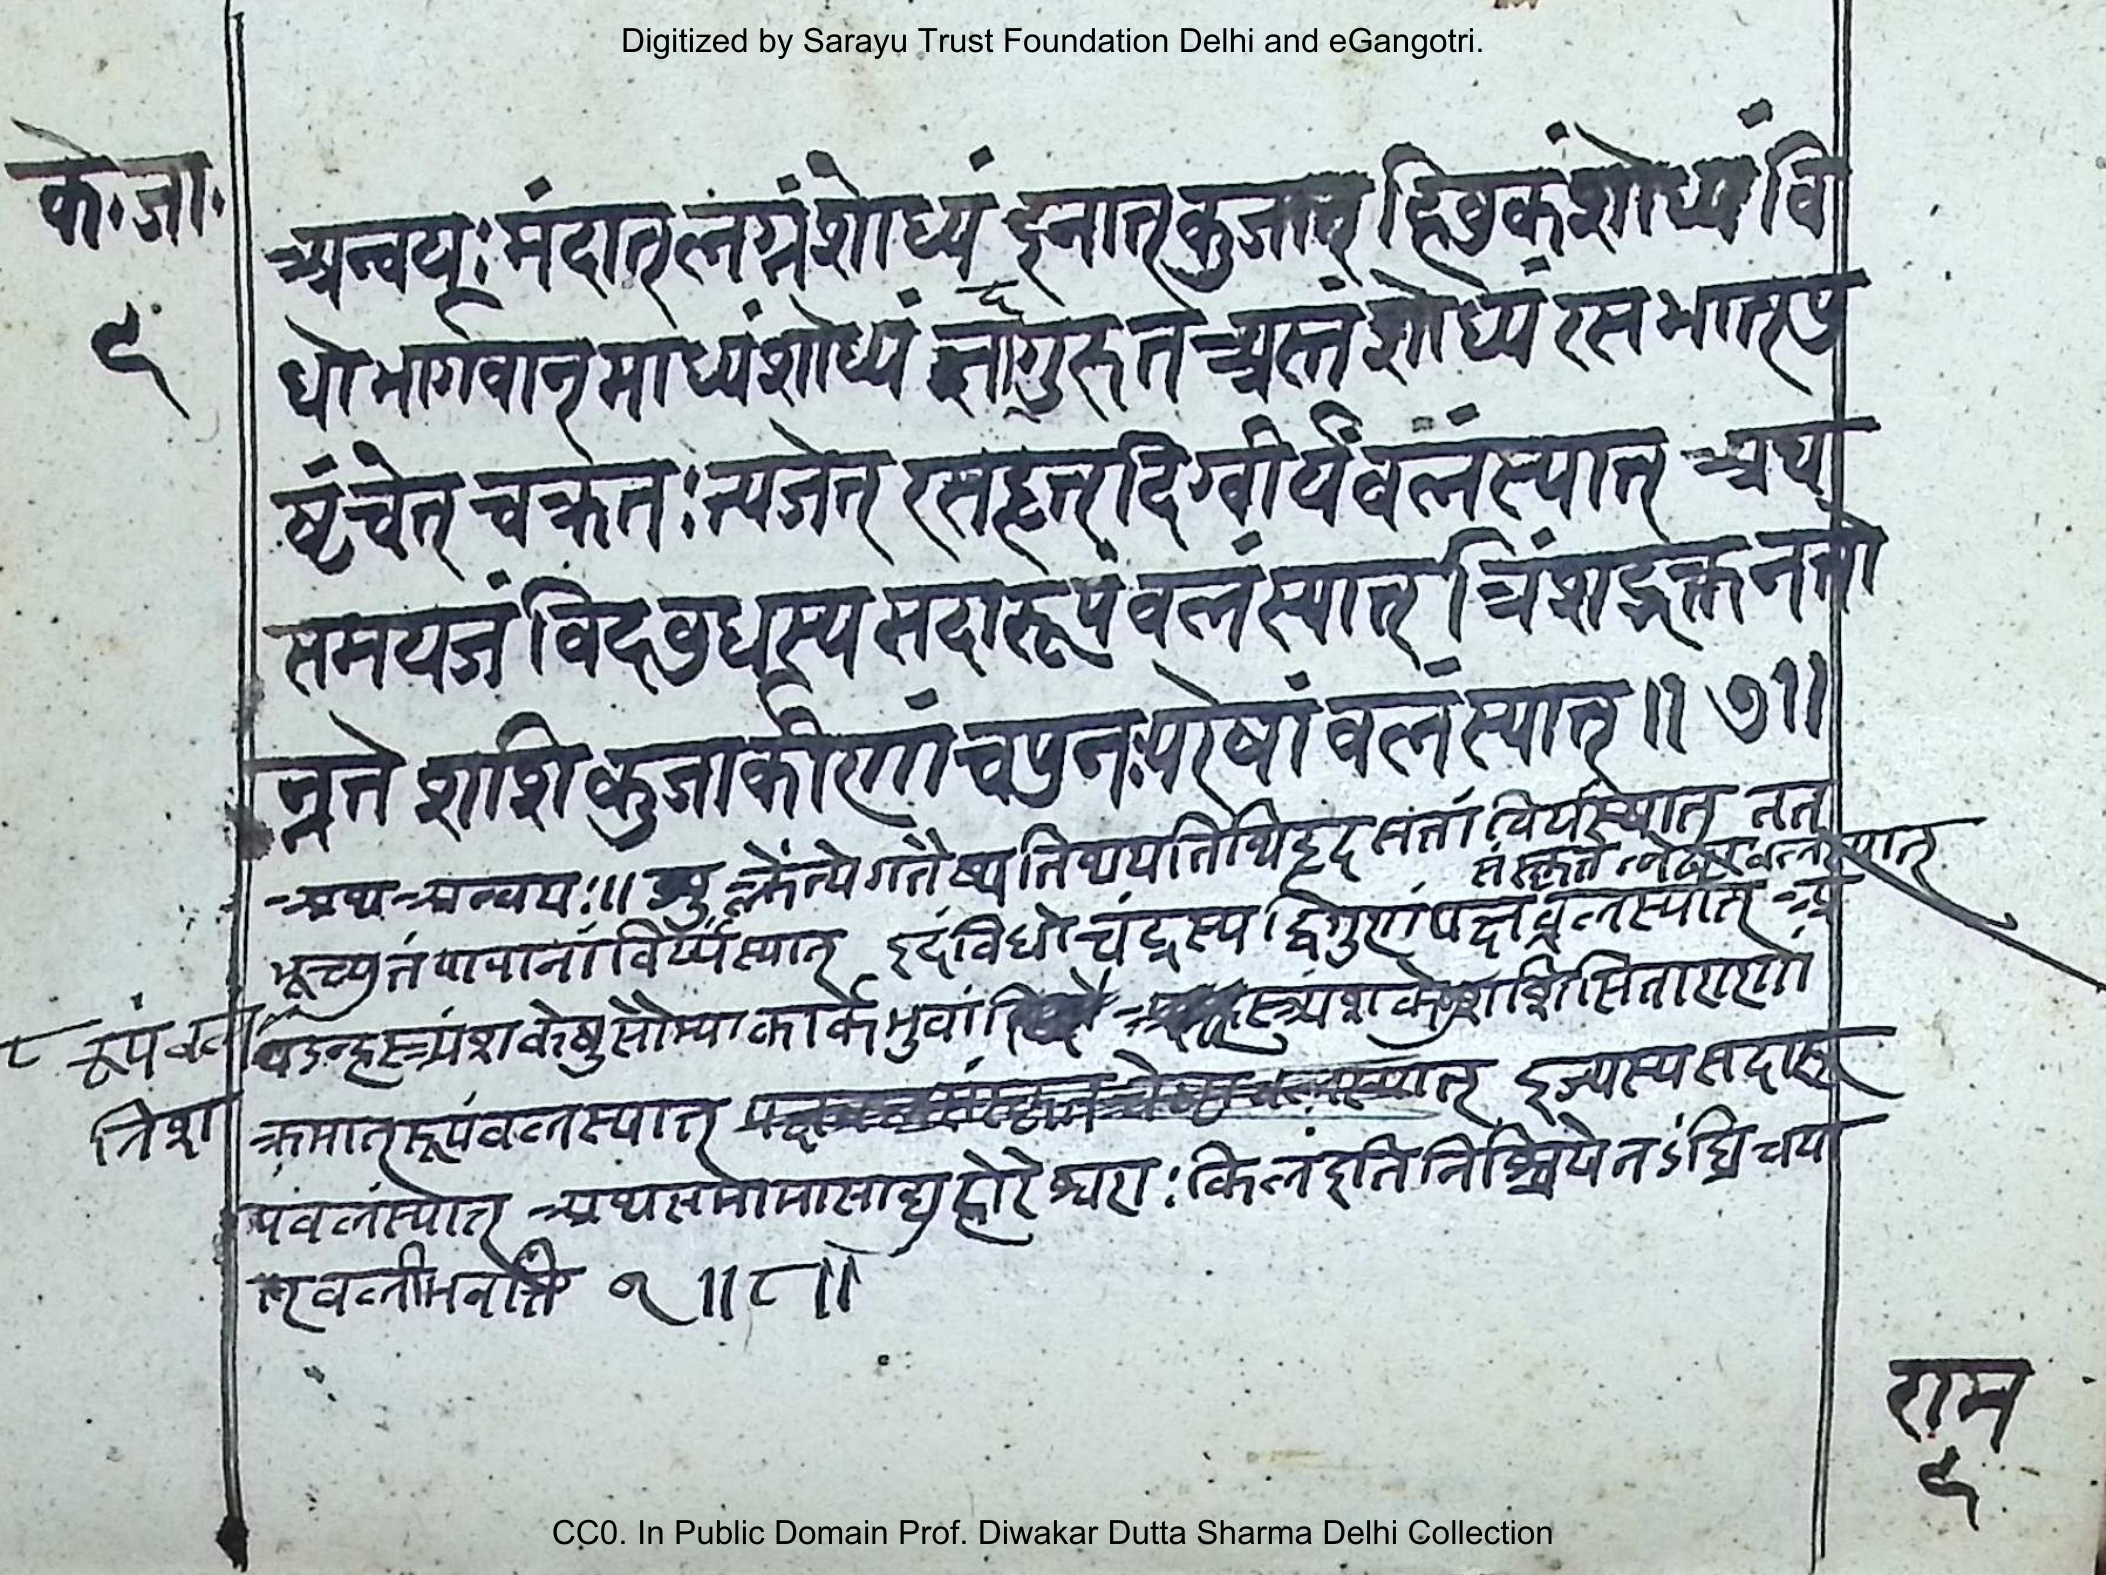 Digitized by Sarayu Trust Foundation Delhi and eGangotri.
के.जा.
९
अन्वयः मंदात् लग्नं शोध्यं इनात् कुजात् हिवुकं शोध्यं वि
धो भार्गवात् माध्यं शोध्यं गुरुत अस्तं शोध्यं रस भात् पु
ष्टं चेत् चक्रतः त्यजेत् रसहृत् दिग्वीर्यं वलं स्यात् अथ
समयजं विद वुधस्य सदा रूपं वलं स्यात् त्रिंशद्भक्त नतो
न्नते शशि कुजार्कीणां च पुनः परेषां वलं स्यात् ॥ ७॥
अथ अन्वयः॥ गतैष्य तिथ्य तिथिहृद सतां वीर्यं स्यात् तत्
संस्कृतं स्यात्
भूच्युतं पापानां विर्य्यं स्यात् इदं विधो चंद्रस्य द्विगुणं पक्ष वलं स्यात् अ
८ रूपं वलं
त्र्यंशकेषु सौम्यार्कार्कभुवां त्र्यंशकेषु शशिसिताराणां
त्रिंश
क्रमात् रूपं वलं स्यात् इज्यस्य सदा रू
पं वलं स्यात् अथ समामासाद्यु होरेश्वराः किल इति निश्चयेन ऽंघ्रि चया
त् वली १ ॥८॥
राम
९
CC0. In Public Domain Prof. Diwakar Dutta Sharma Delhi Collection